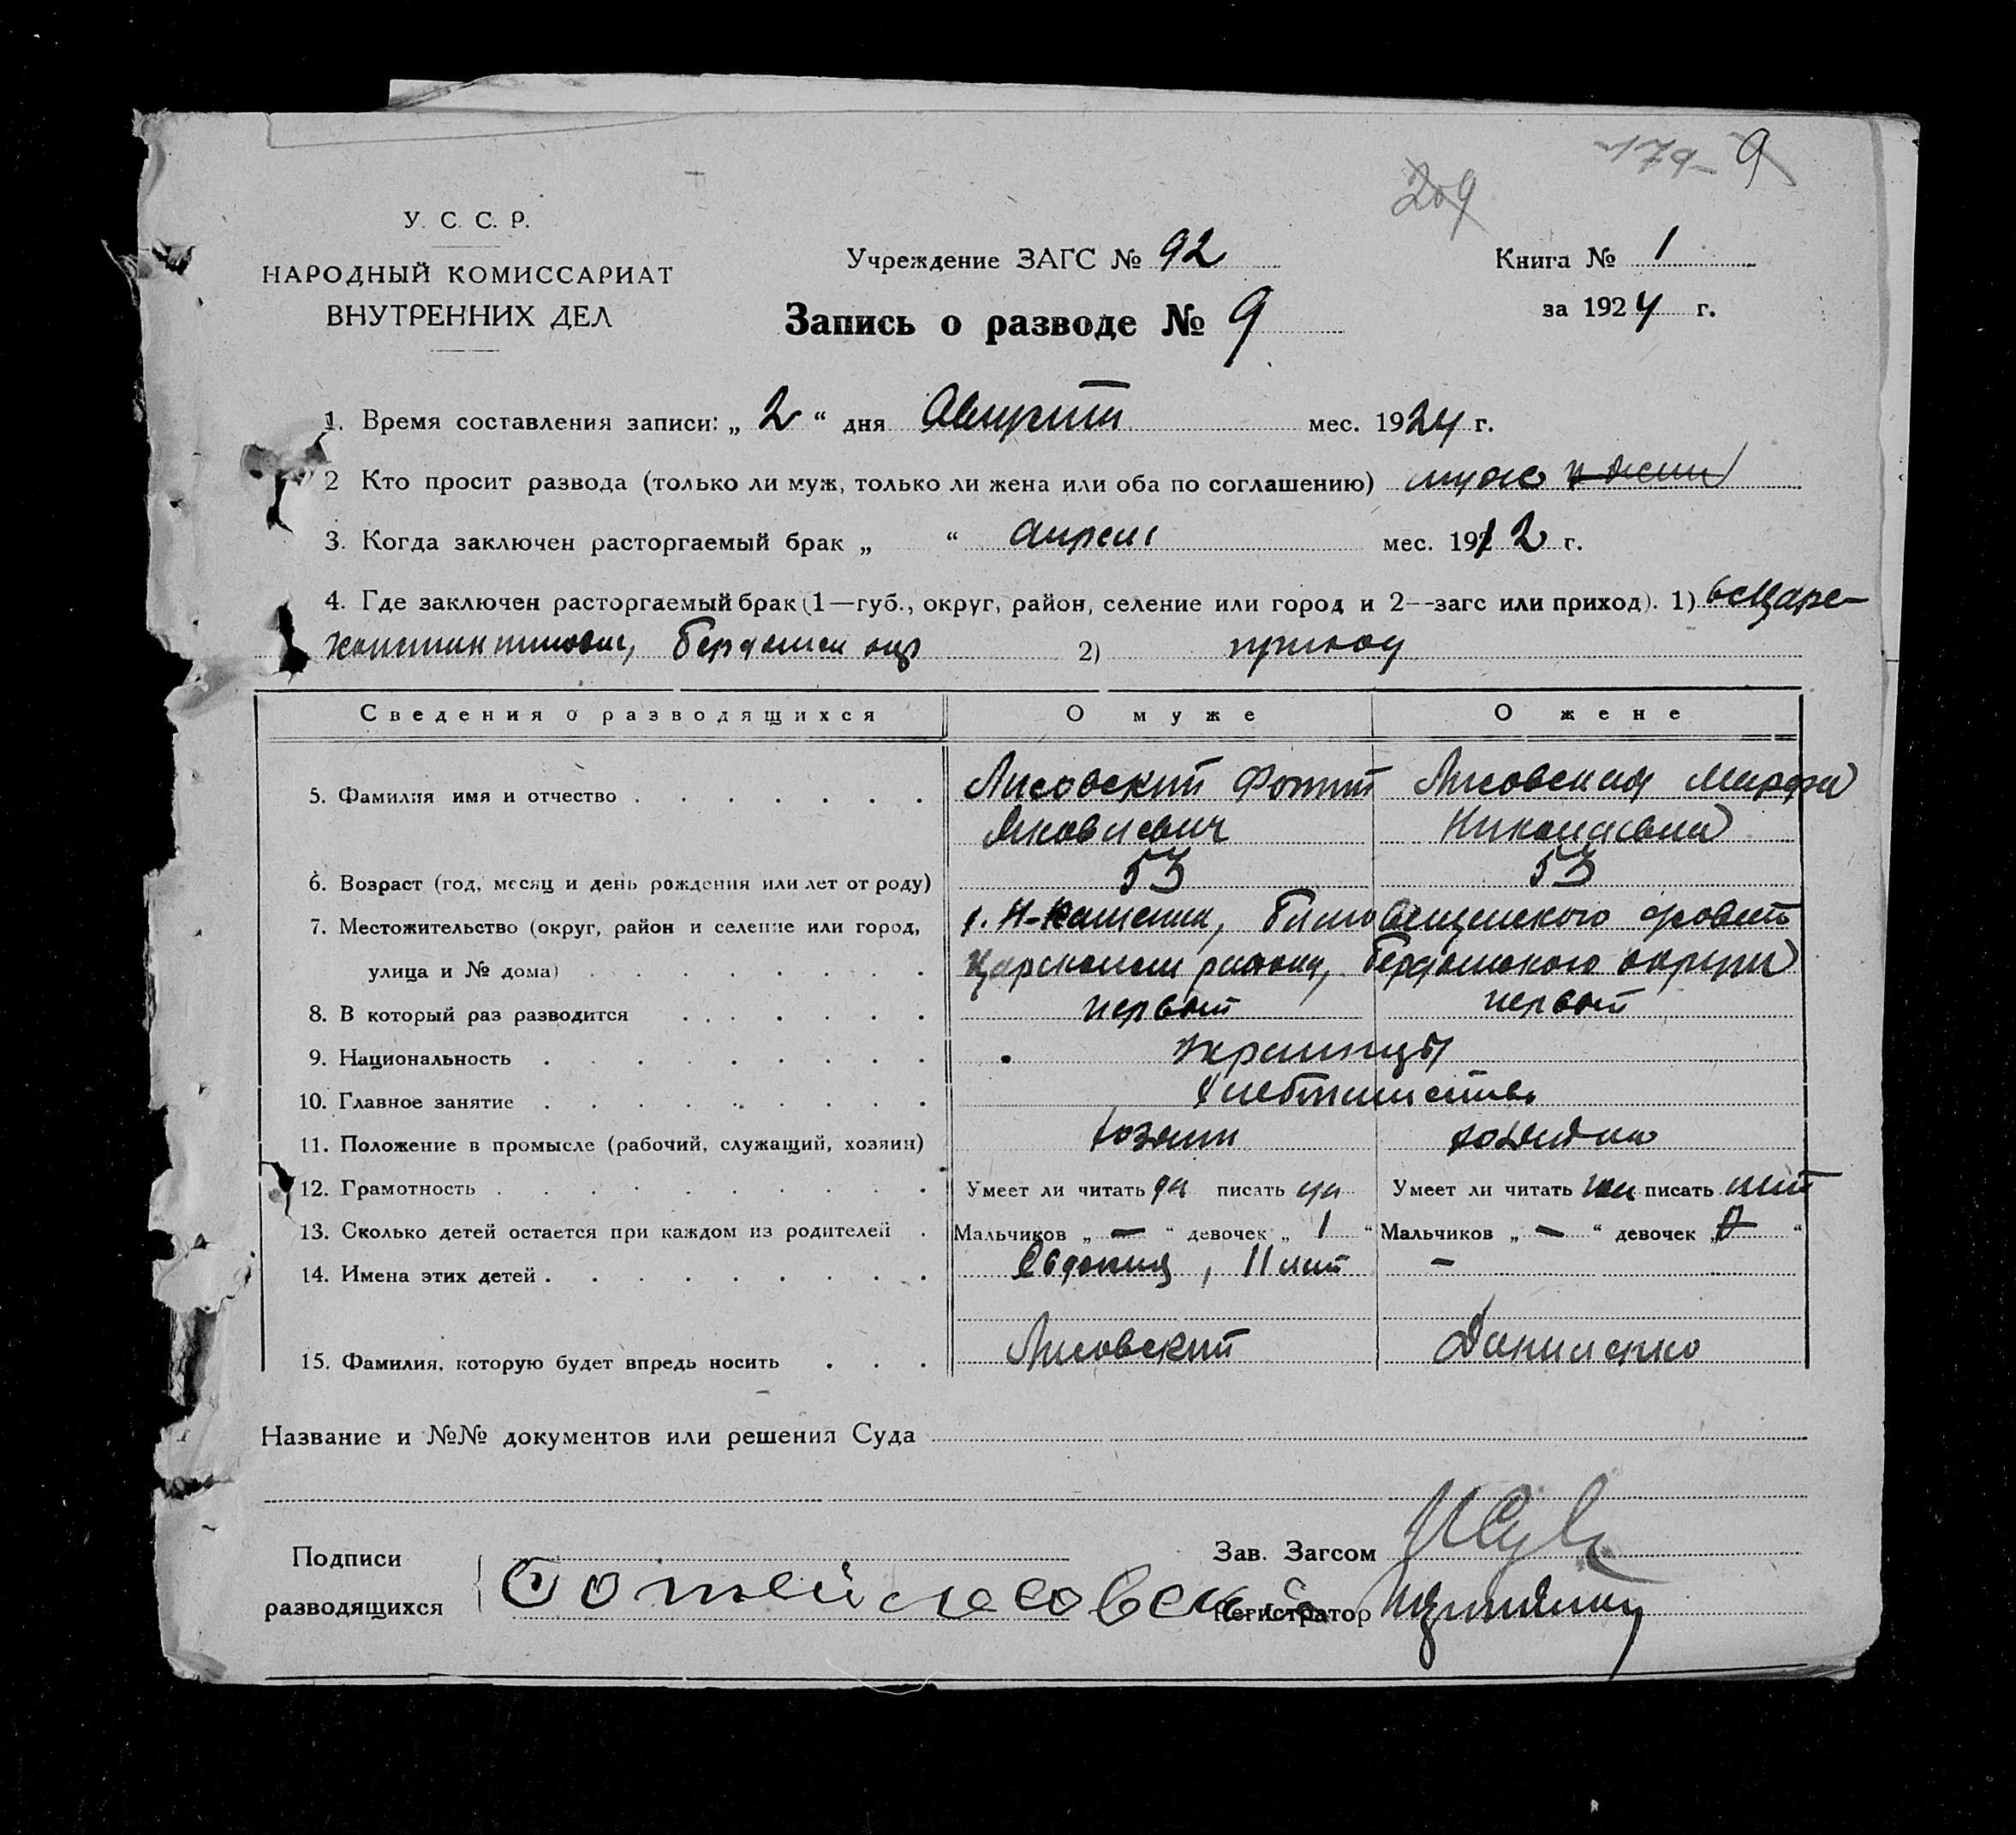 -179- 9
209
У. С. С. Р.
НАРОДНЫЙ КОМИССАРИАТ
ВНУТРЕННИХ ДЕЛ
Учреждение ЗАГС № 92
Книга № 1
Запись о разводе № 9
за 1924 г.
1. Время составления записи: „ 2 “ дня Август мес. 1924 г.
2 Кто просит развода (только ли муж, только ли жена или оба по соглашению) муж и жена
3. Когда заключен расторгаемый брак „ “ апрель мес. 1912 г.
4. Где заключен расторгаемый брак (1—губ., округ, район, селение или город и 2--загс или приход). 1) в с Царе-
константиновке, Бердянск окр 2) приход
Сведения о разводящихся О муже О жене
5. Фамилия имя и отчество Лисовский Фотий Лисовская Марфа
Яковлевич Николаевна
6. Возраст (год, месяц и день рождения или лет от роду) 53 53
7. Местожительство (округ, район и селение или город, Благовещенского
улица и № дома) района, Бердянского округа
8. В который раз разводится первый первый
9. Национальность украинцы
10. Главное занятие хлебопашество
11. Положение в промысле (рабочий, служащий, хозяин) хозяин хозяйка
12. Грамотность Умеет ли читать да писать да Умеет ли читать писать нет
13. Сколько детей остается при каждом из родителей Мальчиков „ — “ девочек „ 1 “ Мальчиков „ — “ девочек „ “
14. Имена этих детей Евдокия, 11 лет —
15. Фамилия, которую будет впредь носить Лисовский Даниленко
Название и №№ документов или решения Суда
Подписи
разводящихся
Зав. Загсом
Фотей лесовский
Регистратор